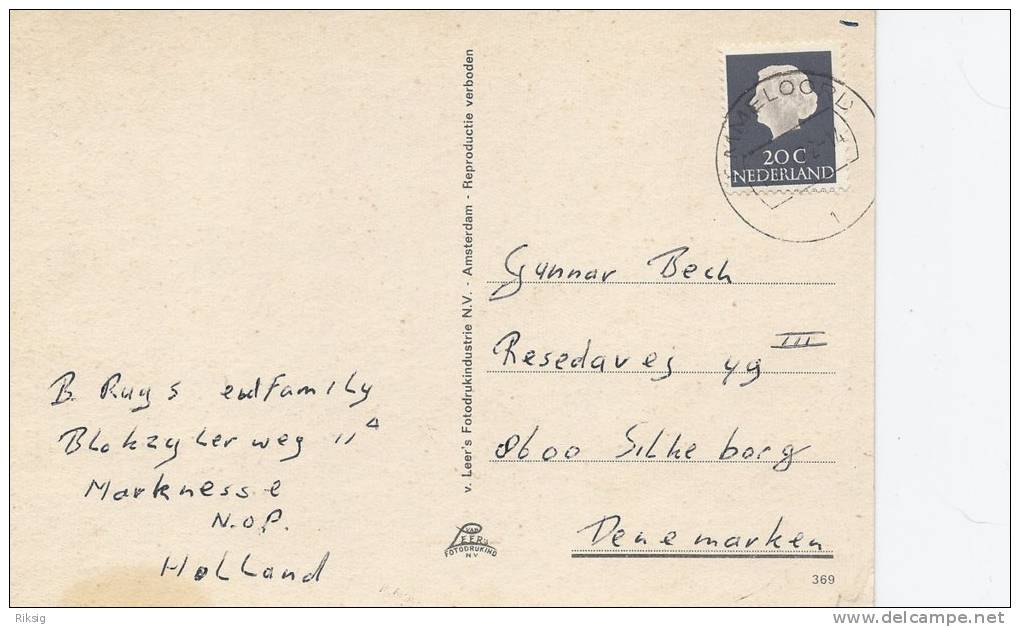 B. Ruys endFamily
Blokzylerweg 11 A
Marknesse
N.O.P.
Holland
v. Leer's Fotodrukindustrie N.V. - Amsterdam - Reproductie verboden
VAN
LEER'S
FOTODRUKIND
N.V.
20C
NEDERLAND
1
Gunnar Bech
Resedavej 49 III
8600 Silkeborg
Denemarken
369
Riksig
delcampe.net